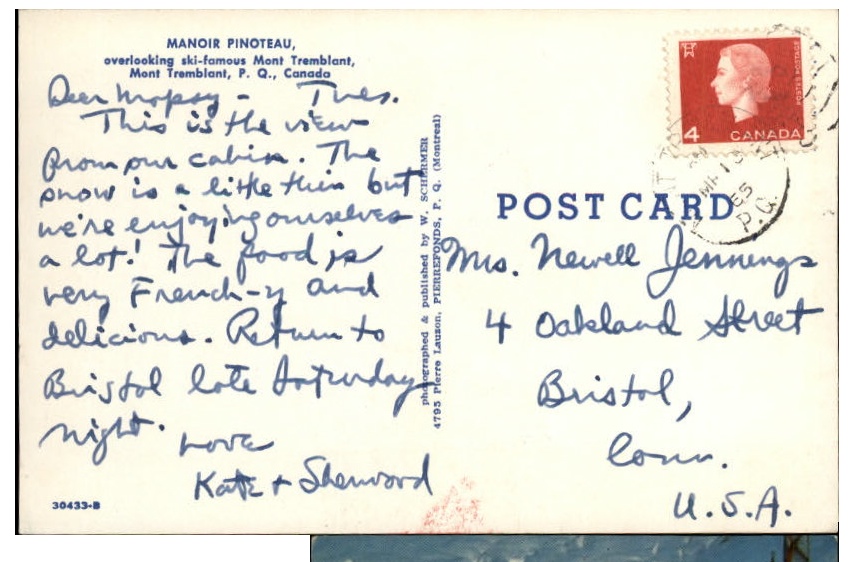 MANOIR PINOTEAU,
overlooking ski-famous Mont Tremblant,
Mont Tremblant, P. Q., Canada
Dear Mopsy - Tues.
This is the view
from our cabin. The
snow is a little thin but
we're enjoying ourselves
a lot! The food is
very French-y and
delicious. Return to
Bristol late Saturday
night.
Love
Kate + Sherwood
30433-B
photographed & published by W. SCHERMER
4795 Pierre Lauzon, PIERREFONDS, P. Q. (Montreal)
4
CANADA
POSTES POSTAGE
65
P.Q.
POST CARD
Mrs. Newell Jennings
4 Oakland Street
Bristol,
Conn.
U.S.A.